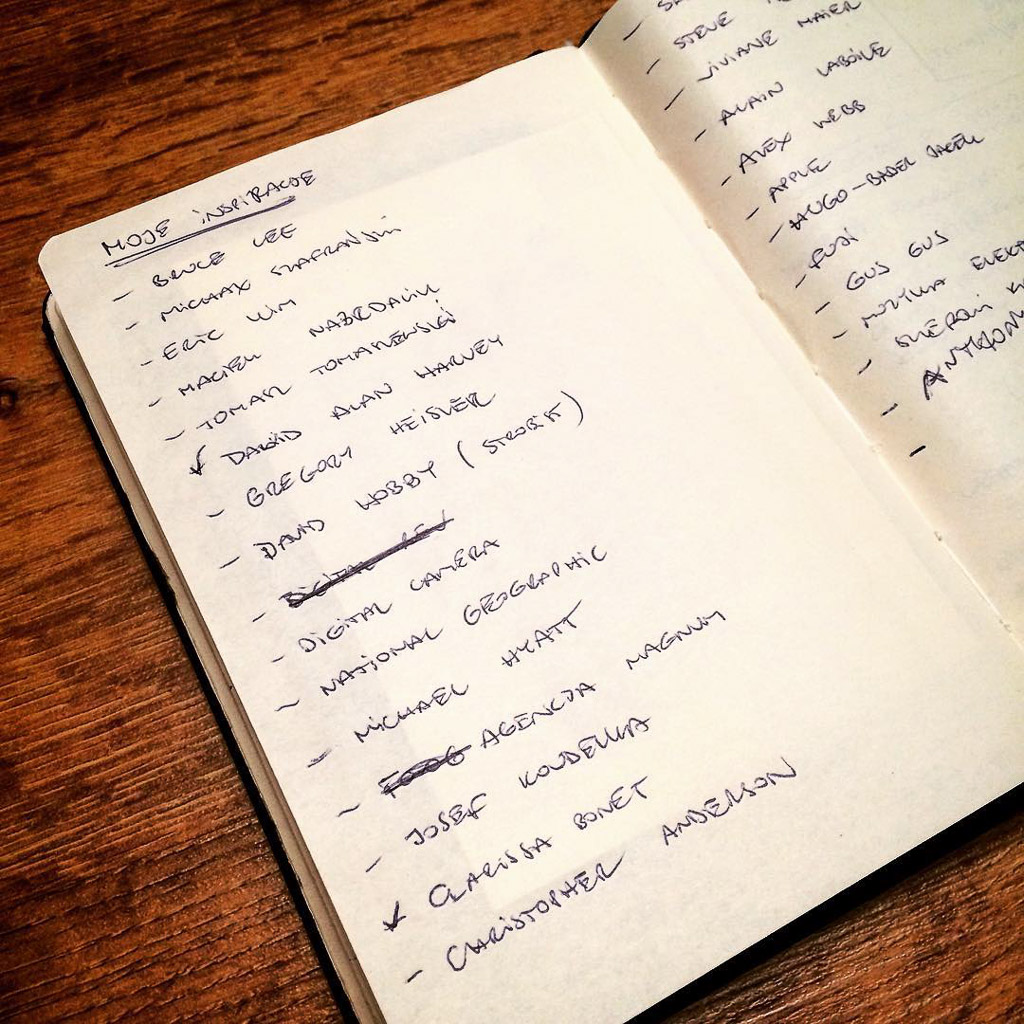 MOJE INSPIRACJE
- BRUCE LEE
- MICHAŁ SZAFRAŃSKI
- ERIC KIM
- MACIEK NABRDALIK
- TOMASZ TOMASZEWSKI
✓ DAVID ALAN HARVEY
- GREGORY HEISLER
- DAVID HOBBY (STROBIST)
- DIGITAL REV
- DIGITAL CAMERA
- NATIONAL GEOGRAPHIC
- MICHAEL HYATT
- AGENCJA MAGNUM
- JOSEF KOUDELKA
✓ CLARISSA BONET
- CHRISTOPHER ANDERSON
- STEVE
- VIVIANE MAIER
- ALAIN LABOILE
- ALEX WEBB
- APPLE
- HUGO-BADER JACEK
- FUJI
- GUS GUS
- MUZYKA ELEKT